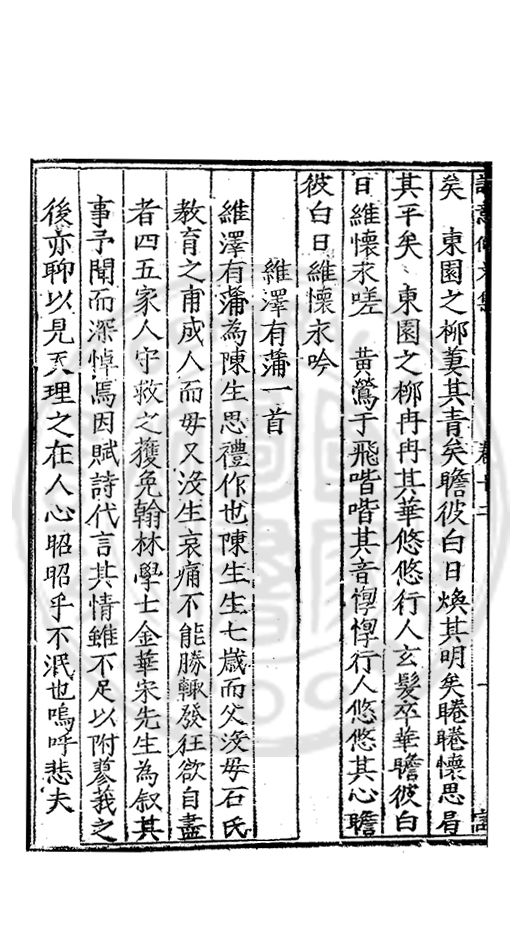 矣　東園之柳萋其青矣瞻彼白日煥其明矣睠睠懷思曷
其平矣　東園之柳冉冉其華悠悠行人玄髮卒華瞻彼白
日維懷永嗟　黄鶯于飛喈喈其音惸惸行人悠悠其心瞻
彼白日維懷永吟
維澤有蒲一首
維澤有蒲為陳生思禮作也陳生生七歲而父沒母石氏
教育之甫成人而母又沒生哀痛不能勝輙發狂欲自盡
者四五家人守救之獲免翰林學士金華宋先生為叙其
事予聞而深悼焉因賦詩代言其情雖不足以附蓼莪之
後亦聊以見天理之在人心昭昭乎不泯也嗚呼悲夫